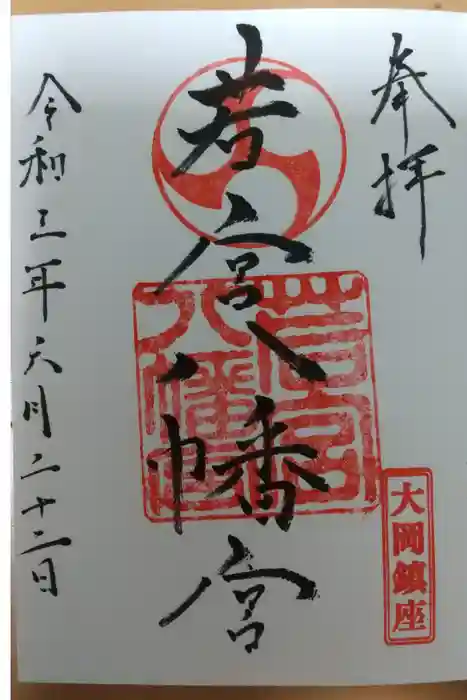 奉拝
若宮八幡宮
若宮
八幡宮
大岡鎮座
令和三年六月二十二日